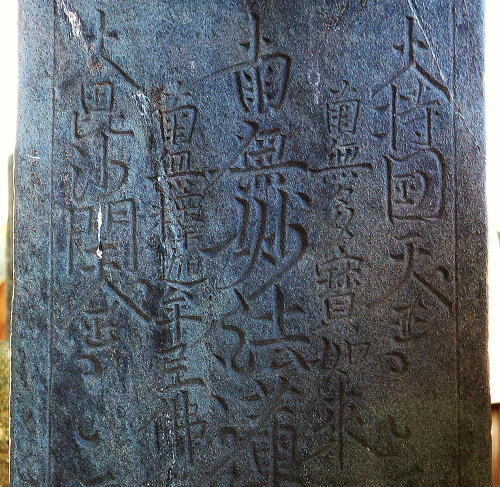 大持国天王
南無多寳如来
南無妙法蓮
南無釋迦牟尼佛
大毘沙門天王